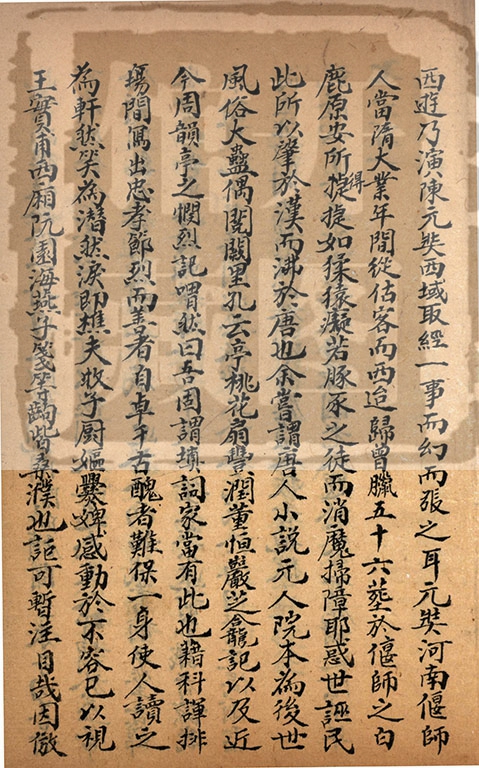 西遊乃演陳元奘西域取經一事而幻而張之耳元奘河南偃師
人當隋大業年間從估客而西迨歸曾臘五十六塟於偃師之白
鹿原安所得㨗㨗如猱猿癡若豚豕之徒而消魔掃障耶惑世誣民
此所以肇於漢而沸於唐也余嘗謂唐人小説元人院本為後世
風俗大蠱偶閲闕里孔云亭桃花扇豐潤董恒巖芝龕記以及近
今周韻亭之憫烈記喟然曰吾固謂填詞家當有此也藉科諢排
場間寫出忠孝節烈而善者自卓千古醜者難保一身使人讀之
為軒然笑為潸然淚即樵夫牧子厨嫗爨婢感動於不容已以視
王實甫西廂阮園海燕子箋等齣皆桑濮也詎可暫注目哉因倣